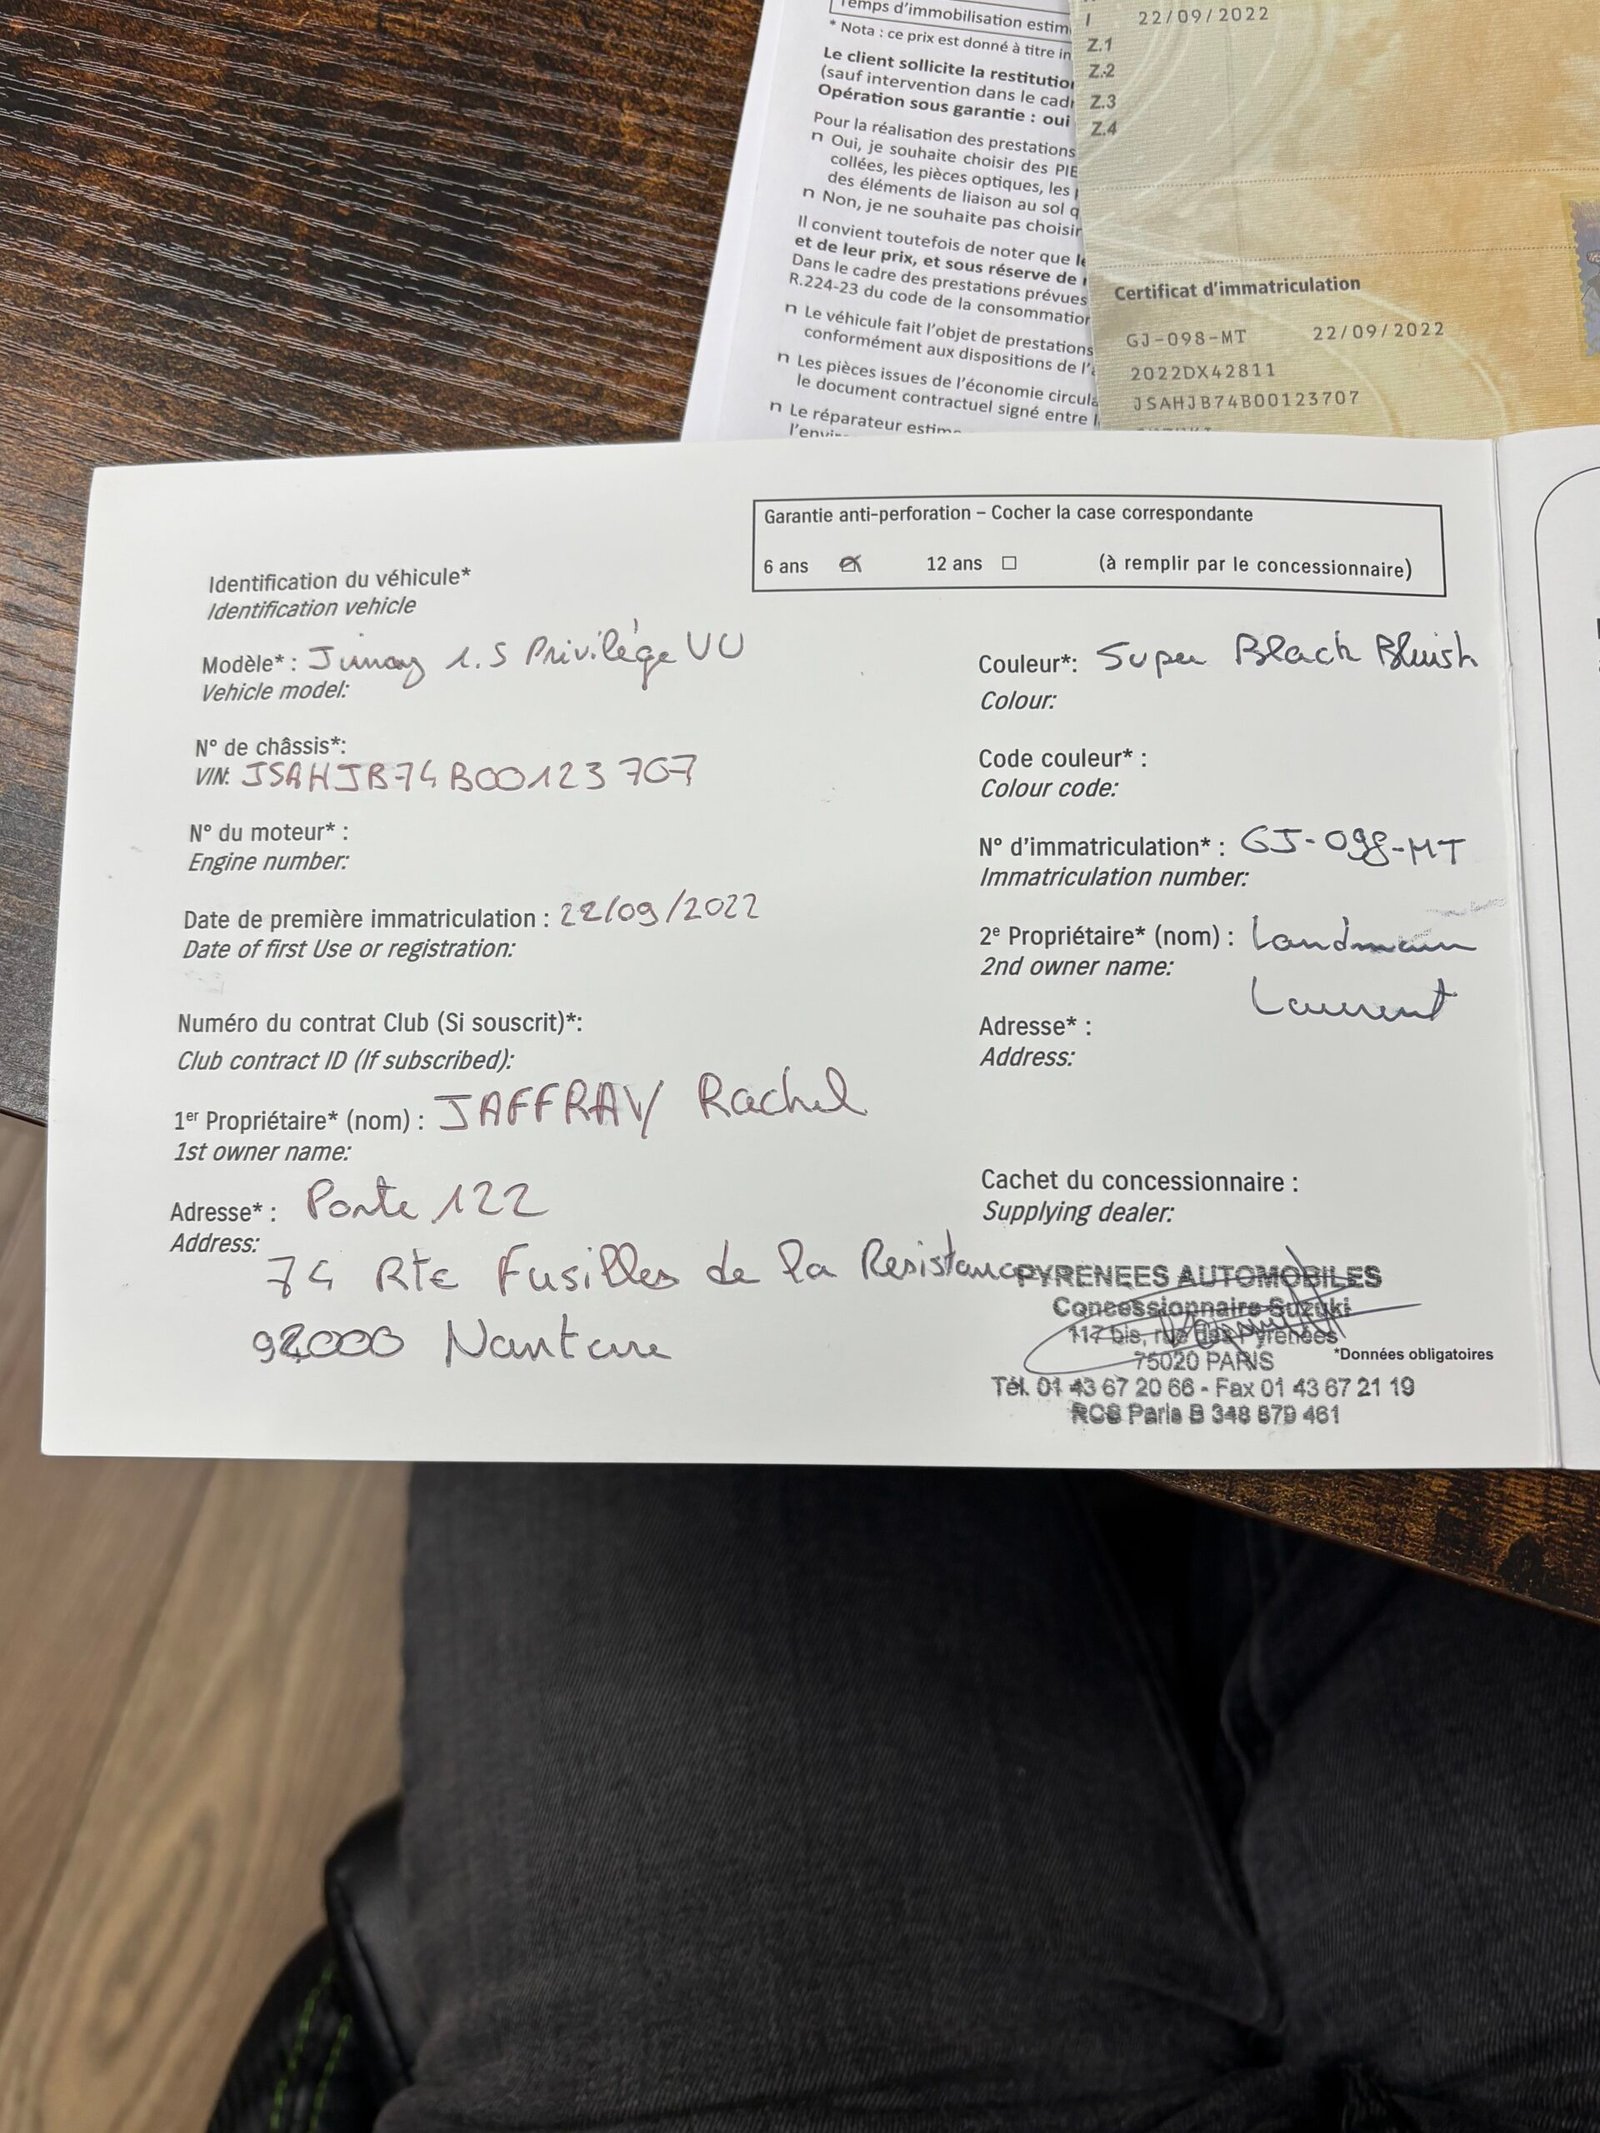 Temps d'immobilisation estim
* Nota : ce prix est donné à titre in
Le client sollicite la restitution
(sauf intervention dans le cadr
Opération sous garantie : oui
Pour la réalisation des prestations
n Oui, je souhaite choisir des PIE
collées, les pièces optiques, les
des éléments de liaison au sol q
n Non, je ne souhaite pas choisir
Il convient toutefois de noter que le
et de leur prix, et sous réserve de
Dans le cadre des prestations prévues
R.224-23 du code de la consommation
n Le véhicule fait l'objet de prestations
conformément aux dispositions de l'a
n Les pièces issues de l'économie circula
le document contractuel signé entre l
n Le réparateur estime
l'envi
I 22/09/2022
Z.1
Z.2
Z.3
Z.4
Certificat d'immatriculation
GJ-098-MT 22/09/2022
2022DX42811
JSAHJB74B00123707
Garantie anti-perforation – Cocher la case correspondante
6 ans 12 ans (à remplir par le concessionnaire)
Identification du véhicule*
Identification vehicle
Modèle* : Jimny 1.5 Privilège VU
Vehicle model:
N° de châssis*:
VIN: JSAHJB74B00123707
N° du moteur* :
Engine number:
Date de première immatriculation : 22/09/2022
Date of first Use or registration:
Numéro du contrat Club (Si souscrit)*:
Club contract ID (If subscribed):
1er Propriétaire* (nom) : JAFFRAY Rachel
1st owner name:
Adresse* : Porte 122
Address:
74 Rte Fusilles de la Resistance
92000 Nanterre
Couleur*: Super Black Bluish
Colour:
Code couleur* :
Colour code:
N° d'immatriculation* : GJ-098-MT
Immatriculation number:
2e Propriétaire* (nom) : Landmann
2nd owner name:
Laurent
Adresse* :
Address:
Cachet du concessionnaire :
Supplying dealer:
PYRENEES AUTOMOBILES
Concessionnaire Suzuki
117 bis, rue des Pyrénées
75020 PARIS
*Données obligatoires
Tél. 01 43 67 20 66 - Fax 01 43 67 21 19
RCS Paris B 348 679 461